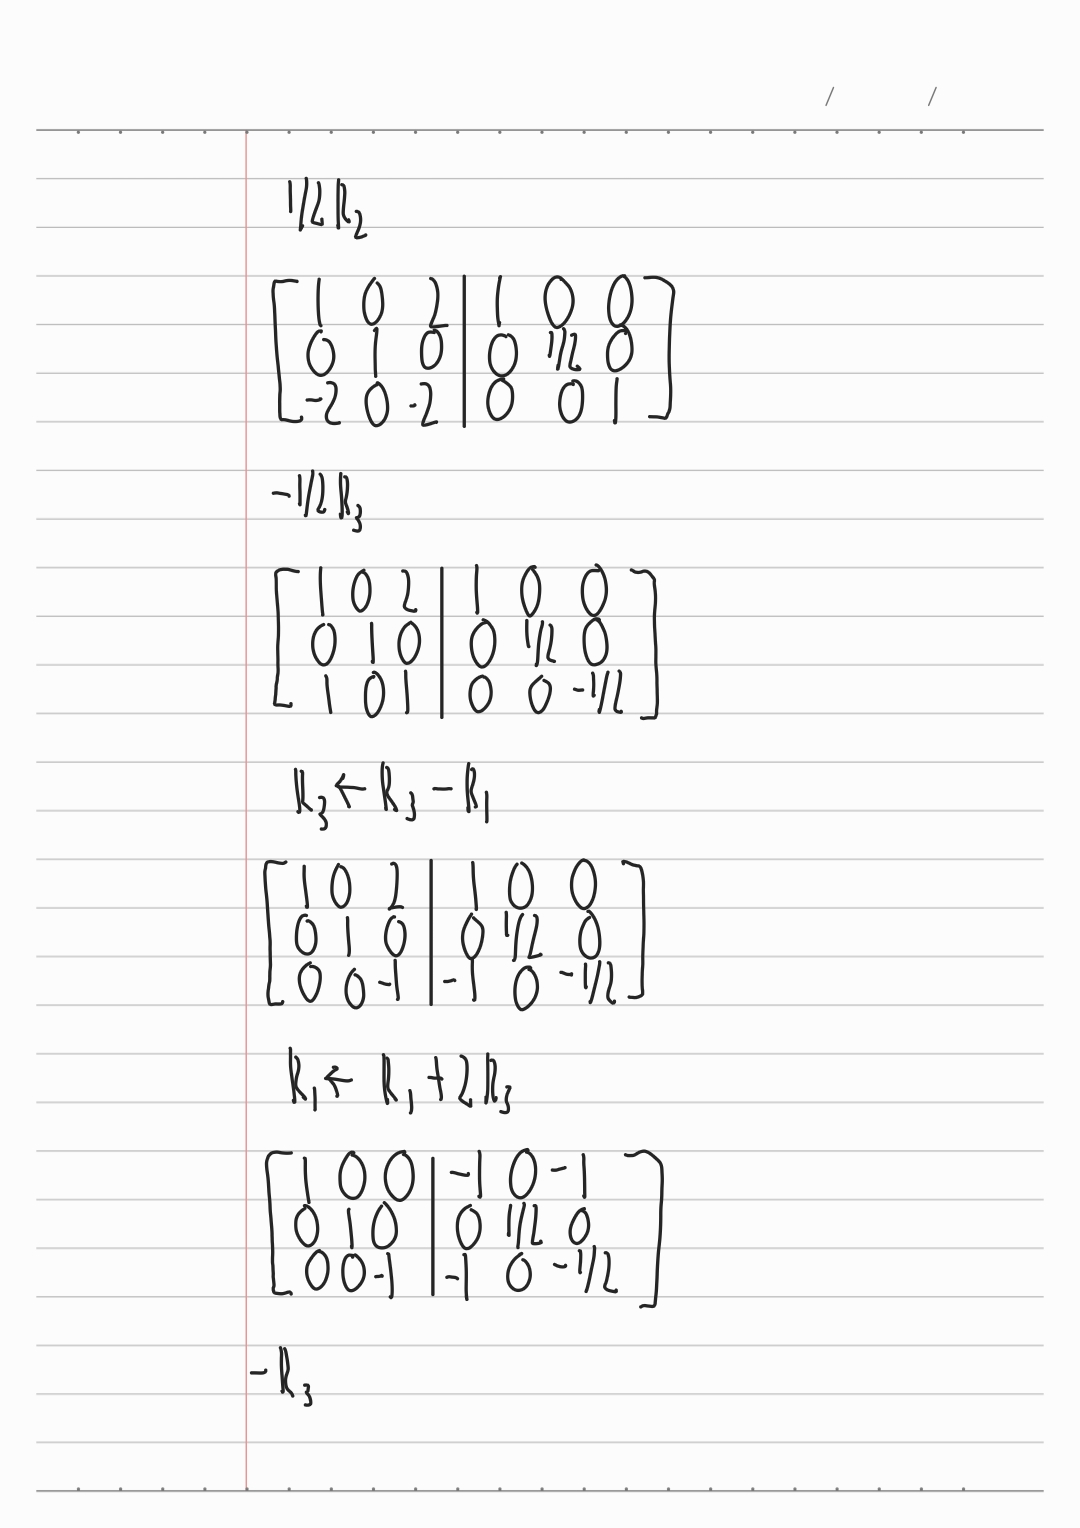 / /
1/2 R2
[ 1 0 2 | 1 0 0 ]
[ 0 1 0 | 0 1/2 0 ]
[ -2 0 -2 | 0 0 1 ]
-1/2 R3
[ 1 0 2 | 1 0 0 ]
[ 0 1 0 | 0 1/2 0 ]
[ 1 0 1 | 0 0 -1/2 ]
R3 ← R3 - R1
[ 1 0 2 | 1 0 0 ]
[ 0 1 0 | 0 1/2 0 ]
[ 0 0 -1 | -1 0 -1/2 ]
R1 ← R1 + 2R3
[ 1 0 0 | -1 0 -1 ]
[ 0 1 0 | 0 1/2 0 ]
[ 0 0 -1 | -1 0 -1/2 ]
-R3